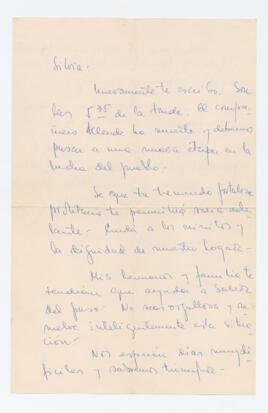 Silvia:
Nuevamente te escribo. Son
las 5 35 de la tarde. El compa
ñero Allende ha muerto y debemos
pasar a una nueva etapa en la
lucha del pueblo.
Se que tu tremenda fortaleza
te permitirá salir ade
lante. Cuida a los niñitos y
la dignidad de nuestro hogar.
Mis hermanos y familia te
tendrán que ayudar a salir
del paso. No seas orgullosa y re
suelve inteligentemente esta situa
ción.
Nos esperan días muy di
fíciles y sabremos triunfar.